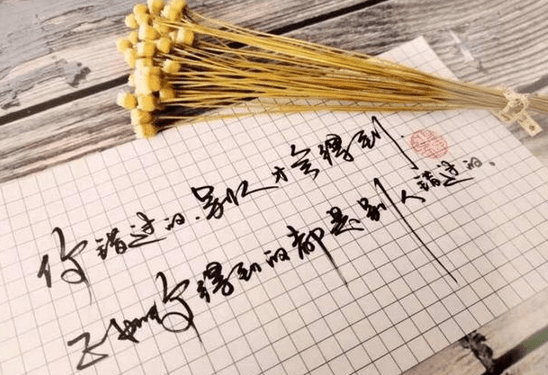 你错过的.别人才会得到.
正如你得到的都是别人错过的。